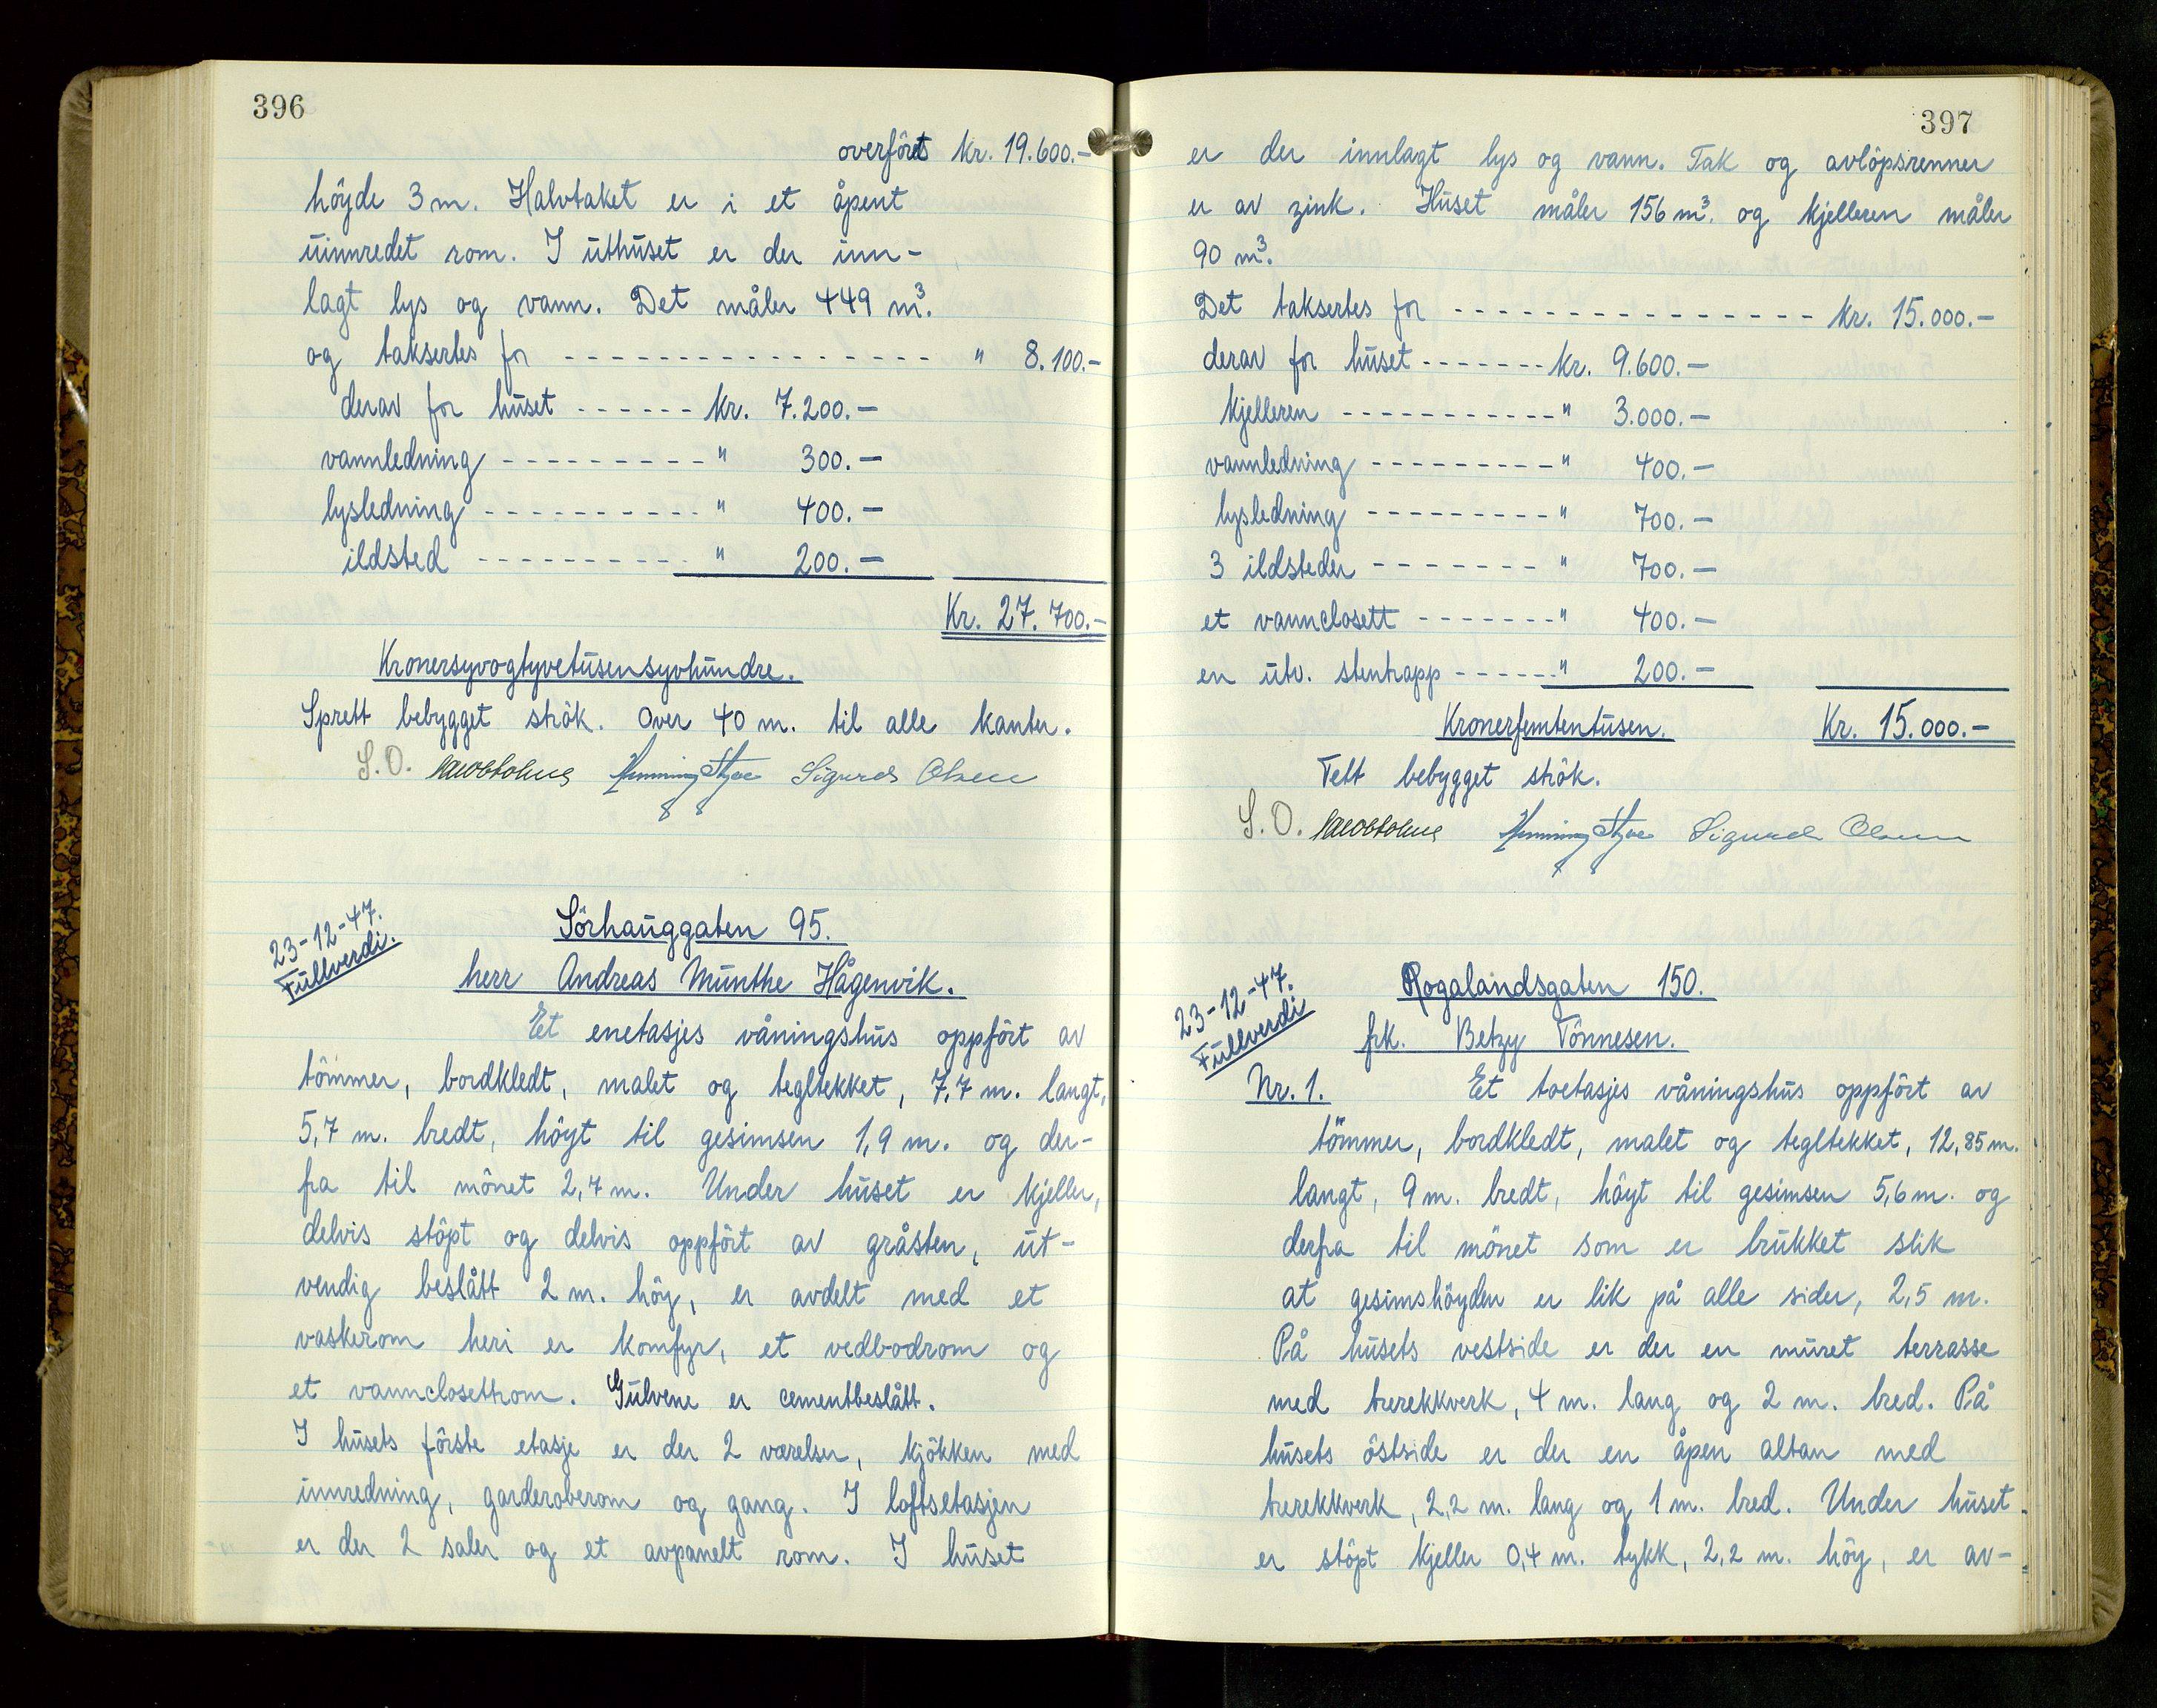 396
overføres kr. 19.600.-
höyde 3 m. Halvtaket er i et åpent
uinnredet rom. I uthuset er der inn-
lagt lys og vann. Det måler 449 m³.
og takseres for - - - - - - - - - - - - - - - - " 8.100.-
derav for huset - - - - - - kr. 7.200.-
vannledning - - - - - - - - - " 300.-
lysledning - - - - - - - - - - " 400.-
ildsted - - - - - - - - - - " 200.-
Kr. 27.700.-
Kronersyvogtyvetusensyvhundre.
Sprett bebygget strök. Over 40 m. til alle kanter.
S. O. Henning Skjoe Sigurd Olsen
23-12-47.
Fullverdi.
Sörhauggaten 95.
herr Andreas Munthe Hågenvik.
Et enetasjes våningshus oppfört av
tömmer, bordkledt, malet og tegltekket, 7,7 m. langt,
5,7 m. bredt, höyt til gesimsen 1,9 m. og der-
fra til mönet 2,7 m. Under huset er kjeller,
delvis stöpt og delvis oppfört av gråsten, ut-
vendig beslått 2 m. höy, er avdelt med et
vaskerom heri er komfyr, et vedbodrom og
et vannclosettrom. Gulvene er cementbeslått.
I husets förste etasje er der 2 værelser, kjökken med
innredning, garderoberom og gang. I loftsetasjen
er der 2 saler og et avpanelt rom. I huset
397
er der innlagt lys og vann. Tak og avlöpsrenner
er av zink. Huset måler 156 m³. og kjelleren måler
90 m³.
Det takseres for - - - - - - - - - - - - - - - - kr. 15.000.-
derav for huset - - - - - - - kr. 9.600.-
kjelleren - - - - - - - - - - - " 3.000.-
vannledning - - - - - - - - - " 400.-
lysledning - - - - - - - - - " 700.-
3 ildsteder - - - - - - - " 700.-
et vannclosett - - - - - - - " 400.-
en utv. stentrapp - - - - - - " 200.-
Kronerfemtentusen. Kr. 15.000.-
Tett bebygget strök.
S. O. Henning Skjoe Sigurd Olsen
23-12-47.
Fullverdi
Rogalandsgaten 150.
frk. Betzy Tönnesen.
Nr. 1. Et toetasjes våningshus oppfört av
tömmer, bordkledt, malet og tegltekket, 12,85 m.
langt, 9 m. bredt, höyt til gesimsen 5,6 m. og
derfra til mönet som er brukket slik
at gesimshöyden er lik på alle sider, 2,5 m.
På husets vestside er der en muret terrasse
med trerekkverk, 4 m. lang og 2 m. bred. På
husets östside er der en åpen altan med
trerekkverk, 2,2 m. lang og 1 m. bred. Under huset
er stöpt kjeller 0,4 m. tykk, 2,2 m. höy, er av-